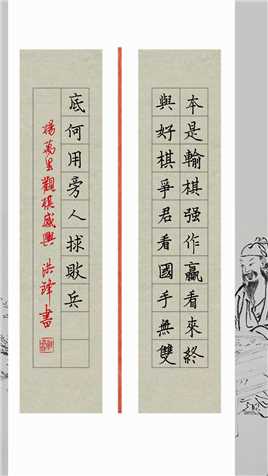 本是輸棋强作贏看來終
與好棋爭君看國手無雙
底何用旁人救敗兵
楊萬里觀棋感興 洪鐸書